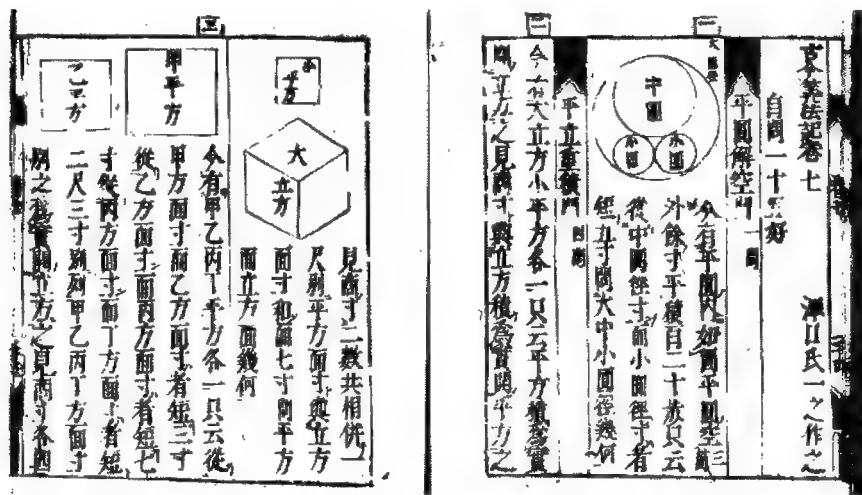 古今算法記巻七
自問一十五好　澤口氏一之作之
平圓解空門 一問
一
大圓徑
中圓
小圓
小圓
今有平圓内如圖平圓空三
外餘寸平積百二十歩只云
從中圓徑寸而小圓徑寸者
短五寸問大中小圓徑幾何
平立重積門 四問
二
今有大立方小平方各一只云平方積為實
開立方之見商寸與立方積為實開平方之
小平方
大立方
見商寸二數共相併一
尺別平方面寸與立方
面寸和而七寸問平方
面立方面幾何
三
甲平方
乙平方
今有甲乙丙丁平方各一只云從
甲方面寸而乙方面寸者短三寸
從乙方面寸而丙方面寸者短七
寸從丙方面寸而丁方面寸者短
二尺三寸別列甲乙丙丁方面寸
別之為實開立方之見商寸各四